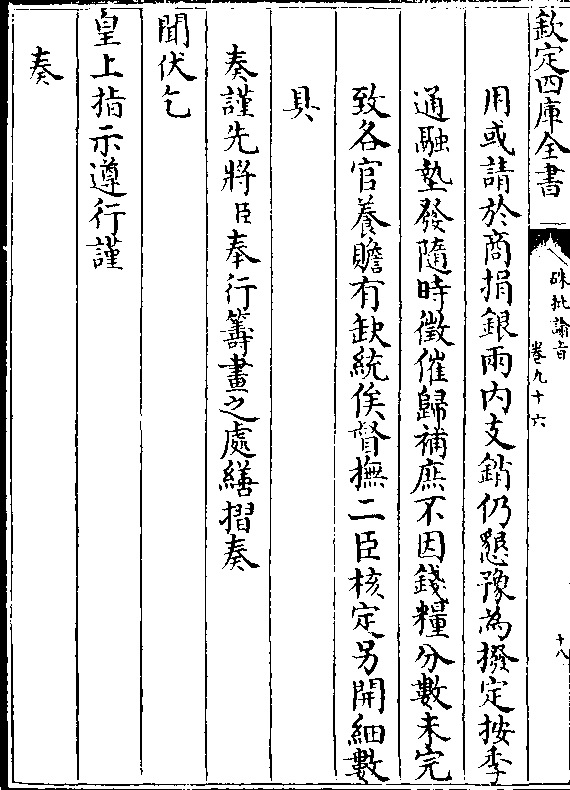 欽定四庫全書
硃批諭旨
卷九十六
十八
用或請於商捐銀兩内支銷仍懇豫為撥定按季
通融墊發隨時徵催歸補庶不因錢糧分數未完
致各官養贍有缺統俟督撫二臣核定另開細數
具
奏謹先將臣奉行籌畫之處繕摺奏
聞伏乞
皇上指示遵行謹
奏